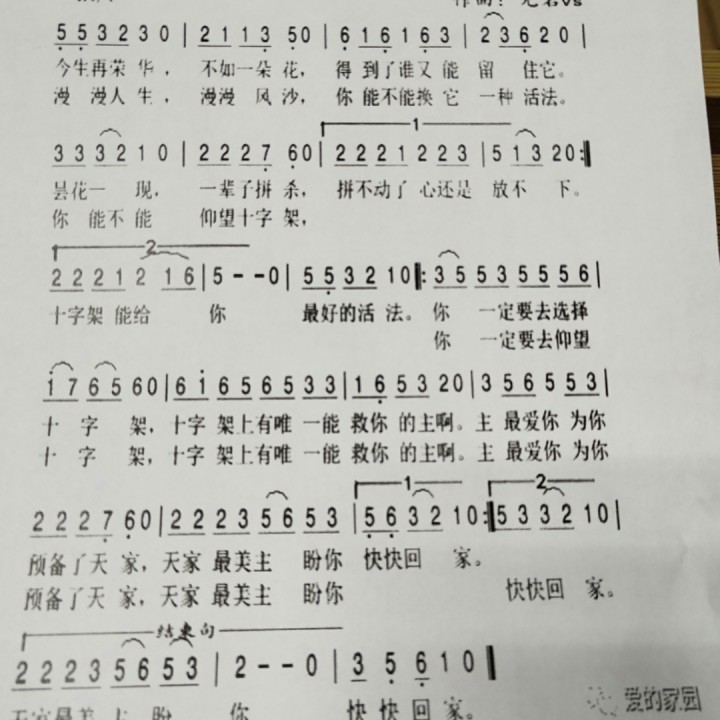 5 5 3 2 3 0 | 2 1 1 3 5 0 | 6 1 6 1 6 3 | 2 3 6 2 0 |
今生再荣 华， 不如一朵 花， 得 到了谁又 能 留 住它。
漫 漫人 生， 漫漫 风 沙， 你 能不能换 它 一种 活法。
1
3 3 3 2 1 0 | 2 2 2 7 6 0 | 2 2 2 1 2 2 3 | 5 1 3 2 0 :||
昙花一 现， 一辈子拼 杀， 拼不动了 心还是 放不 下。
你 能不能 仰望十字 架，
2
2 2 2 1 2 1 6 | 5 - - 0 | 5 5 3 2 1 0 ||: 3 5 5 3 5 5 5 6 |
十字架 能给 你 最好的活 法。 你 一定要去选择
你 一定要去仰望
1 7 6 5 6 0 | 6 1 6 5 6 5 3 3 | 1 6 5 3 2 0 | 3 5 6 5 5 3 |
十 字 架，十字 架上有唯 一能 救你 的主啊。主 最爱你 为你
十 字 架，十字 架上有唯 一能 救你 的主啊。主 最爱你 为你
1 2
2 2 2 7 6 0 | 2 2 2 3 5 6 5 3 | 5 6 3 2 1 0 :|| 5 3 3 2 1 0 |
预备了天 家，天家 最美主 盼你 快快回 家。
预备了天 家，天家 最美主 盼你 快快回 家。
结束句
2 2 2 3 5 6 5 3 | 2 - - 0 | 3 5 6 1 0 ||
天家最美 主 盼 你 快 快 回 家。
爱的家园